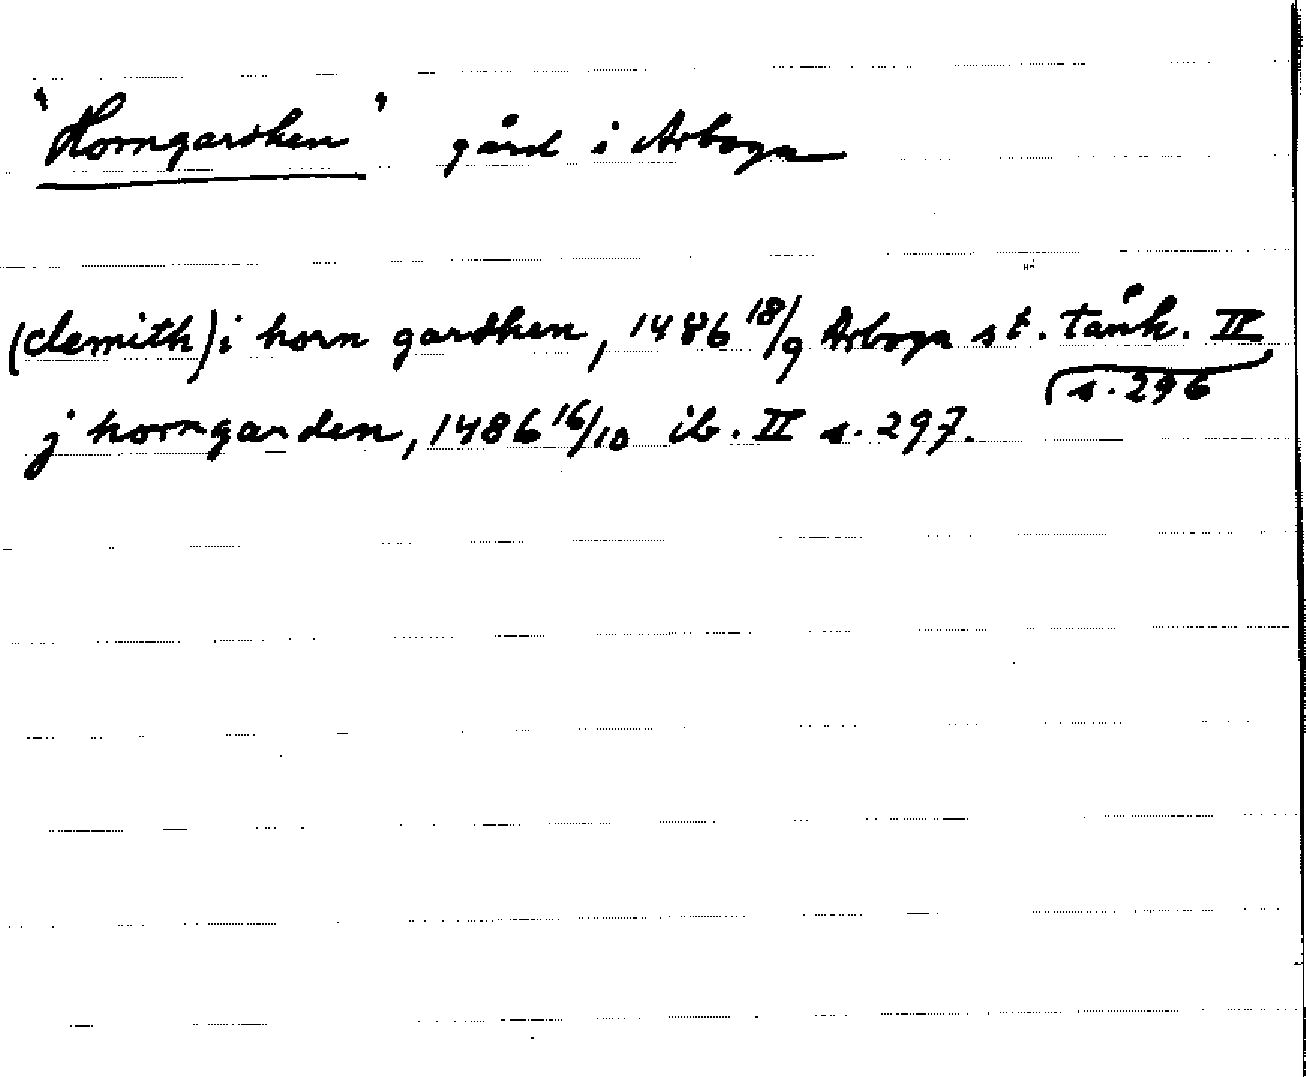 'Horngardhen' gård i Arboga
(clemith) i horn gardhen, 1486 18/9 Arboga st. tänk. II
s. 296
j horngarden, 1486 16/10 ib. II s. 297.